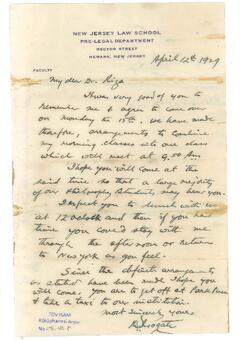 NEW JERSEY LAW SCHOOL
PRE-LEGAL DEPARTMENT
RECTOR STREET
NEWARK, NEW JERSEY
FACULTY
April 12th 1929
My dear Dr.
How very good of you to
remember me & agree to come over
on Monday the 15th. We have made
therefore, arrangements to combine
my morning classes into one class
which will meet at 9.00 Am
I hope you will come at the
said time so that a large majority
of our Philosophy Students may hear you.
I expect you to lunch with us
at 12 oclock and then if you have
time you could stay with me
through the afternoon or return
to New York as you feel.
Since the definite arrangements
as stated have been made I hope you
will come. You are to get off at Park Place
& take a taxi to our institution.
most sincerely yours